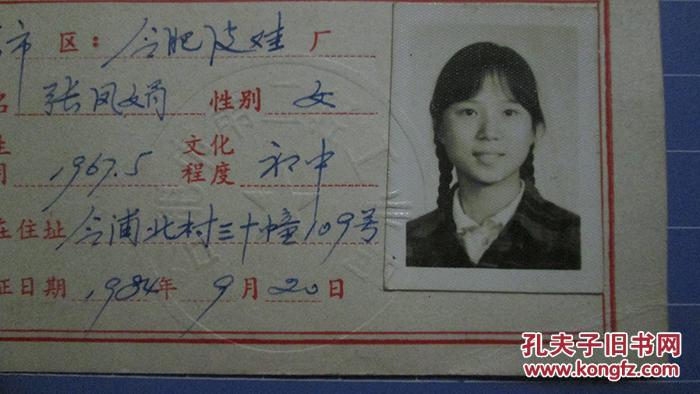 市 区：合肥皮鞋厂
名 张凤娟 性别 女
生 1967.5 文化程度 初中
在住址 合浦北村三十幢109号
证日期 1984年9月20日
孔夫子旧书网
www.kongfz.com